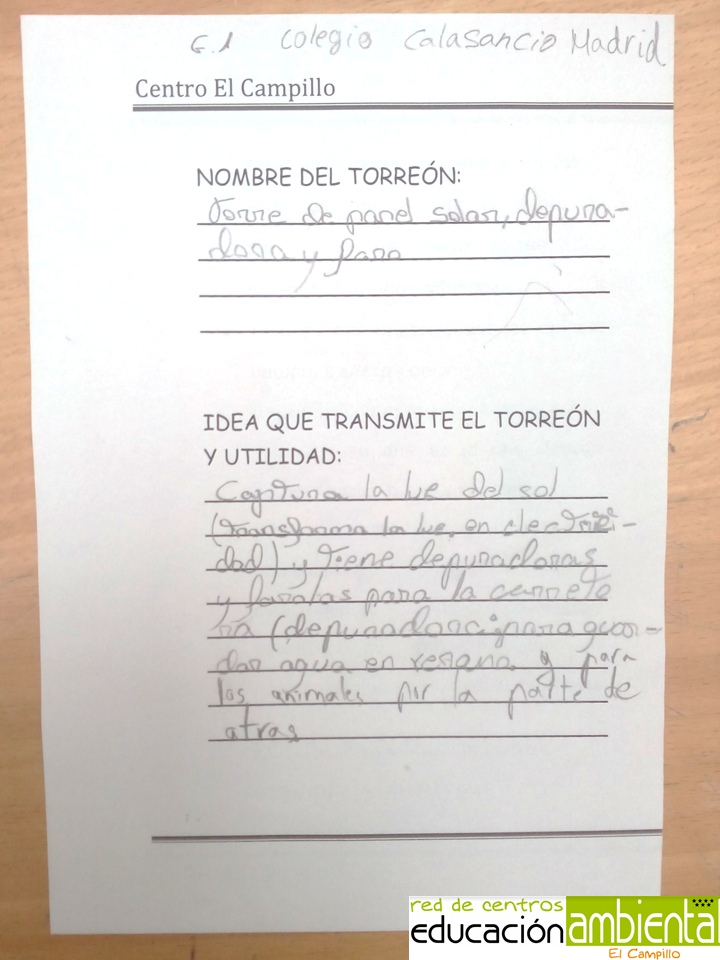 6.1 Colegio Calasancio Madrid
Centro El Campillo
NOMBRE DEL TORREÓN:
Torre de panel solar, depura-
dora y faro
IDEA QUE TRANSMITE EL TORREÓN
Y UTILIDAD:
Captura la luz del sol
(transforma la luz en electrici-
dad) y tiene depuradoras
y farolas para la carrete
ra (depuradora: para guar-
dar agua en reserva y para
los animales pir la parte de
atras
red de centros
educación ambiental
El Campillo